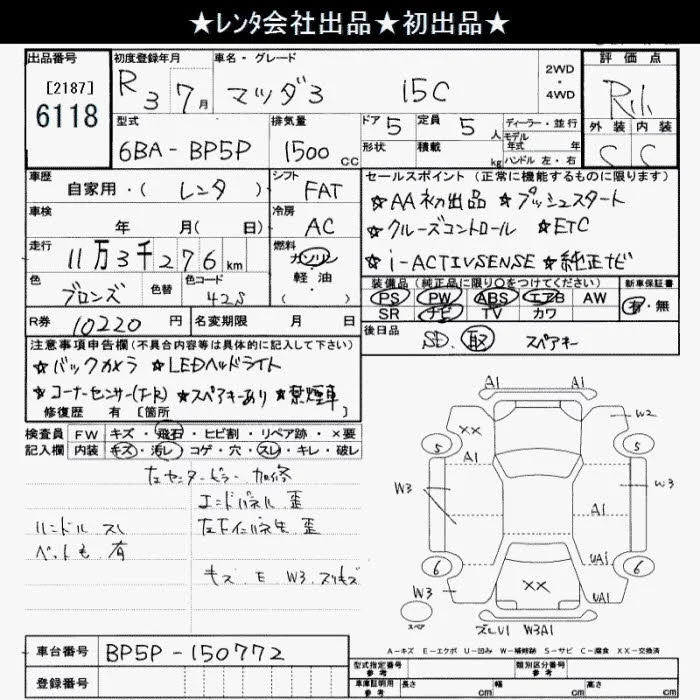 ★レンタ会社出品★初出品★
出品番号
[2187]
6118
初度登録年月
R 3 7月
車名・グレード
マツダ3 15C
2WD
・
4WD
評価点
外装 内装
C C
型式
6BA-BP5P
排気量
1500 cc
ドア 5
形状
定員 5 人
積載 kg
ディーラー・並行
モデル
年式 年
ハンドル 左・右
車歴
自家用・(レンタ)
シフト
FAT
車検
年 月( 日)
冷房
AC
走行
11万3千276km
燃料
ガソリン
軽油
色
ブロンズ
色替
色コード
42S
R券 10220円
名変期限 月 日
セールスポイント(正常に機能するものに限ります)
★AA初出品 ★プッシュスタート
★クルーズコントロール ★ETC
★i-ACTIVSENSE ★純正ナビ
装備品(純正品に限り○をつけてください)
新車保証書
PS PW ABS エアB AW
SR ナビ TV カワ
有・無
後日品
SD. 取 スペアキー
注意事項申告欄(不具合内容等は具体的に記入して下さい)
★バックカメラ ★LEDヘッドライト
★コーナーセンサー(F・R) ★スペアキーあり ★禁煙車
修復歴 有 [箇所 ]
検査員 FW キズ・飛石・ヒビ割・リペア跡・×要
記入欄 内装 キズ・汚レ・コゲ・穴・スレ・キレ・破レ
左センターピラー 加修
エンドパネル 歪
ハンドル スレ
ペットも 有
キズ E W3 スリキズ
A1 A1
XX
W2
5 5
A1
W3
W3
A1
UA1
6 6
W3
XX
UA1
スペア
W3A1
A-キズ E-エクボ U-凹み W-補修跡 S-サビ C-腐食 XX-交換済
車台番号 BP5P-150772
登録番号
型式指定番号
参考
類別区分番号
参考
車庫証明用
参考
長さ cm
幅 cm
高さ cm